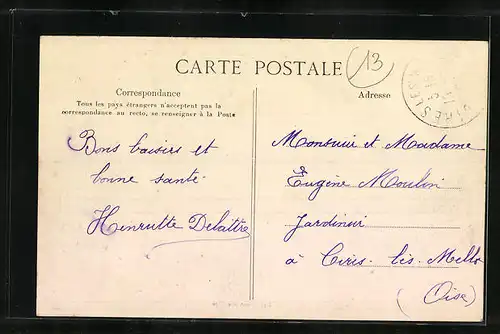 CARTE POSTALE
13
Correspondance
Tous les pays étrangers n'acceptent pas la
correspondance au recto, se renseigner à la Poste
Adresse
Bons baisers et
bonne santé
Henriette Delaître
Monsieur et Madame
Eugène Moulin
Jardinier
à Cires-lès-Mello
(Oise)